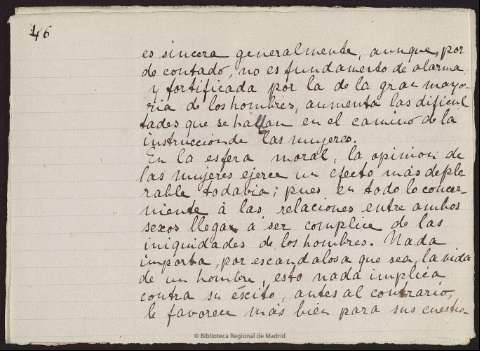 46
es sincera generalmente, aunque, por
de contado, no es fundamento de alarma
y fortificada por la de la gran mayo-
ria de los hombres, aumenta las dificul
tades que se hallan en el camino de la
instruccion de las mujeres.
En la esfera moral, la opinion de
las mujeres ejerce un efecto más deplo
rable todabia; pues, en todo lo concer-
niente á las relaciones entre ambos
sexos llegan a ser complice de las
iniquidades de los hombres. Nada
importa, por escandalosa que sea, la vida
de un hombre, esto nada implica
contra su éscito, antes al contrario,
le favorece más bien para sus cuestio-
© Biblioteca Regional de Madrid